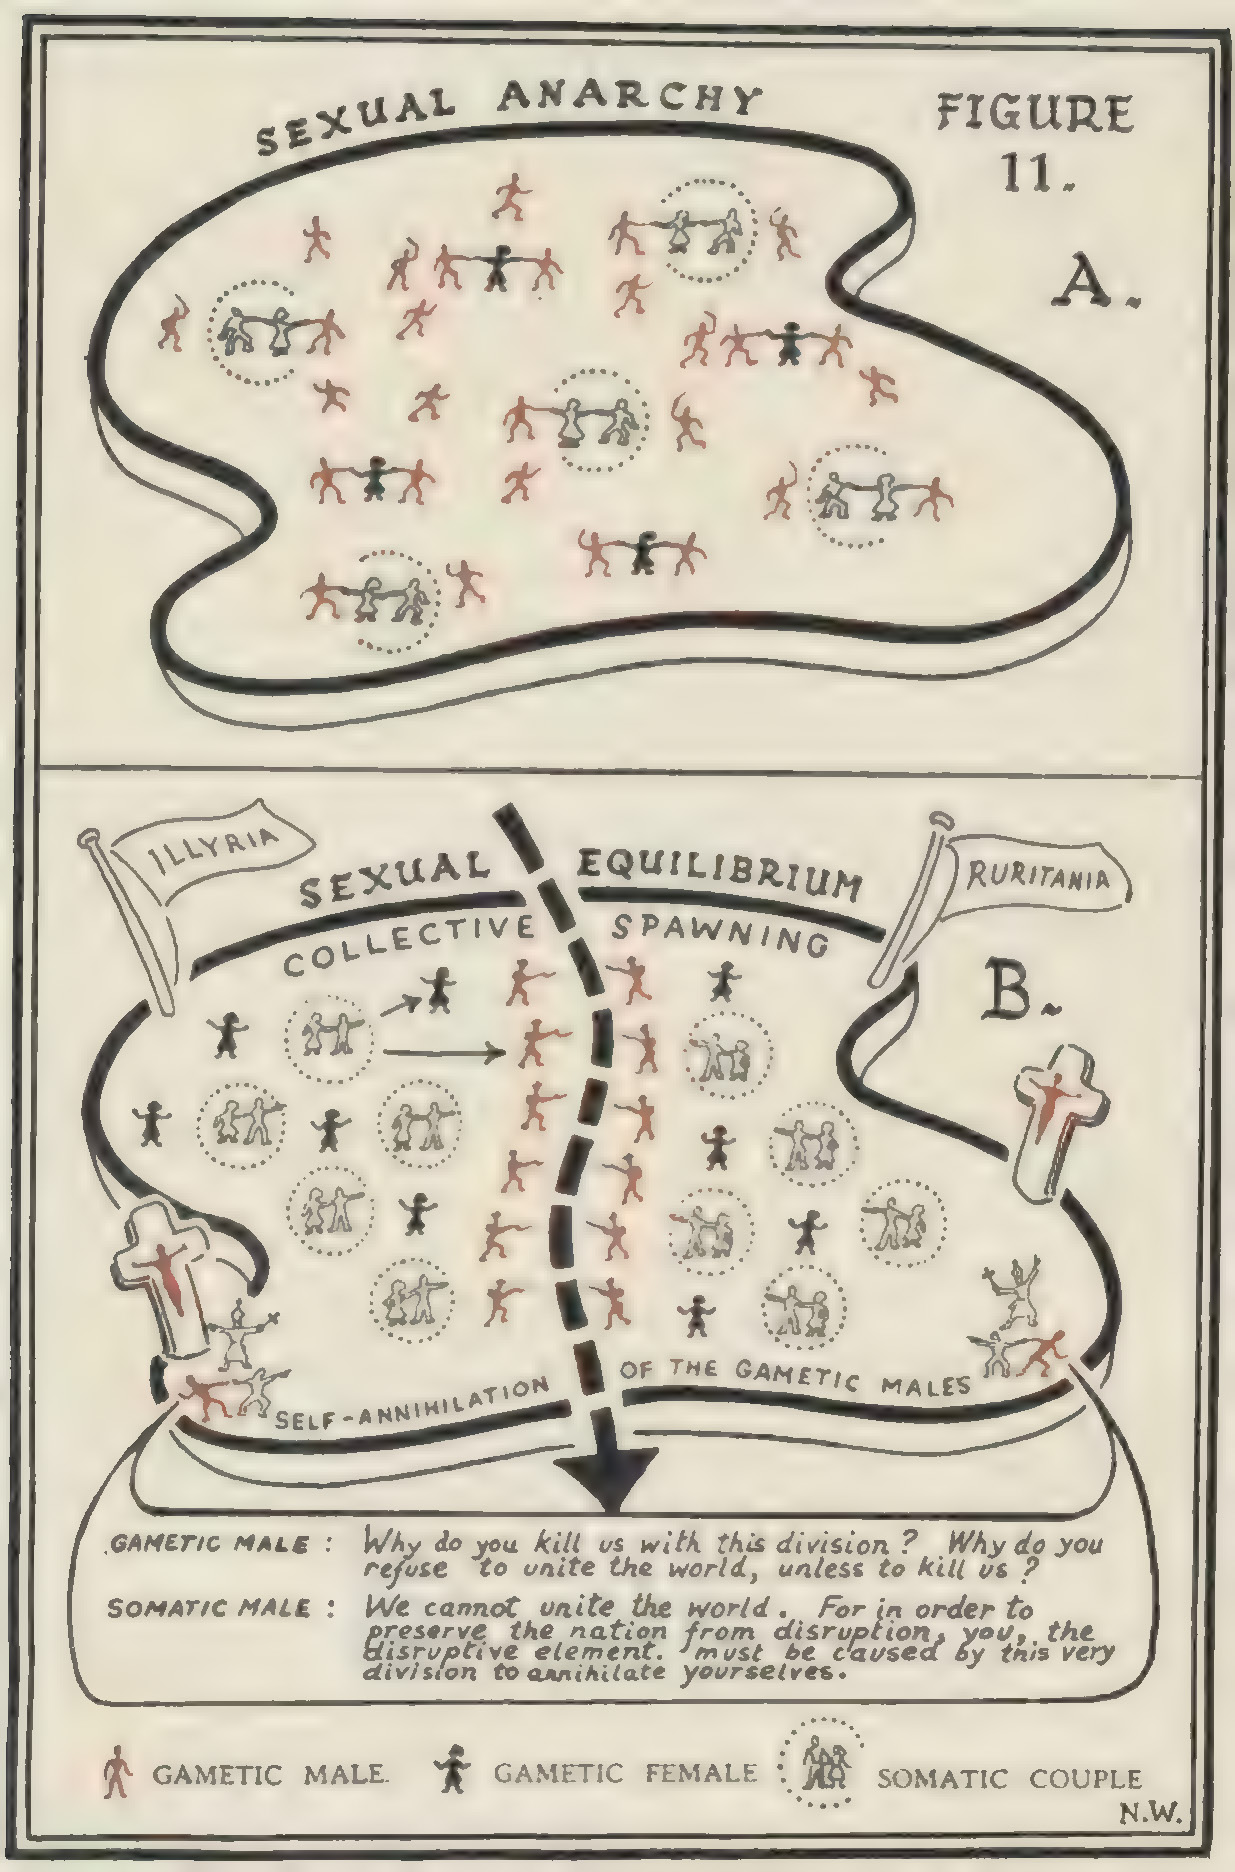 SEXUAL ANARCHY
FIGURE
11.
A.
ILLYRIA
RURITANIA
SEXUAL EQUILIBRIUM
COLLECTIVE SPAWNING
B.
SELF-ANNIHILATION OF THE GAMETIC MALES
GAMETIC MALE : Why do you kill us with this division ? Why do you
refuse to unite the world, unless to kill us ?
SOMATIC MALE : We cannot unite the world. For in order to
preserve the nation from disruption, you, the
disruptive element. must be caused by this very
division to annihilate yourselves.
GAMETIC MALE. GAMETIC FEMALE SOMATIC COUPLE
N.W.